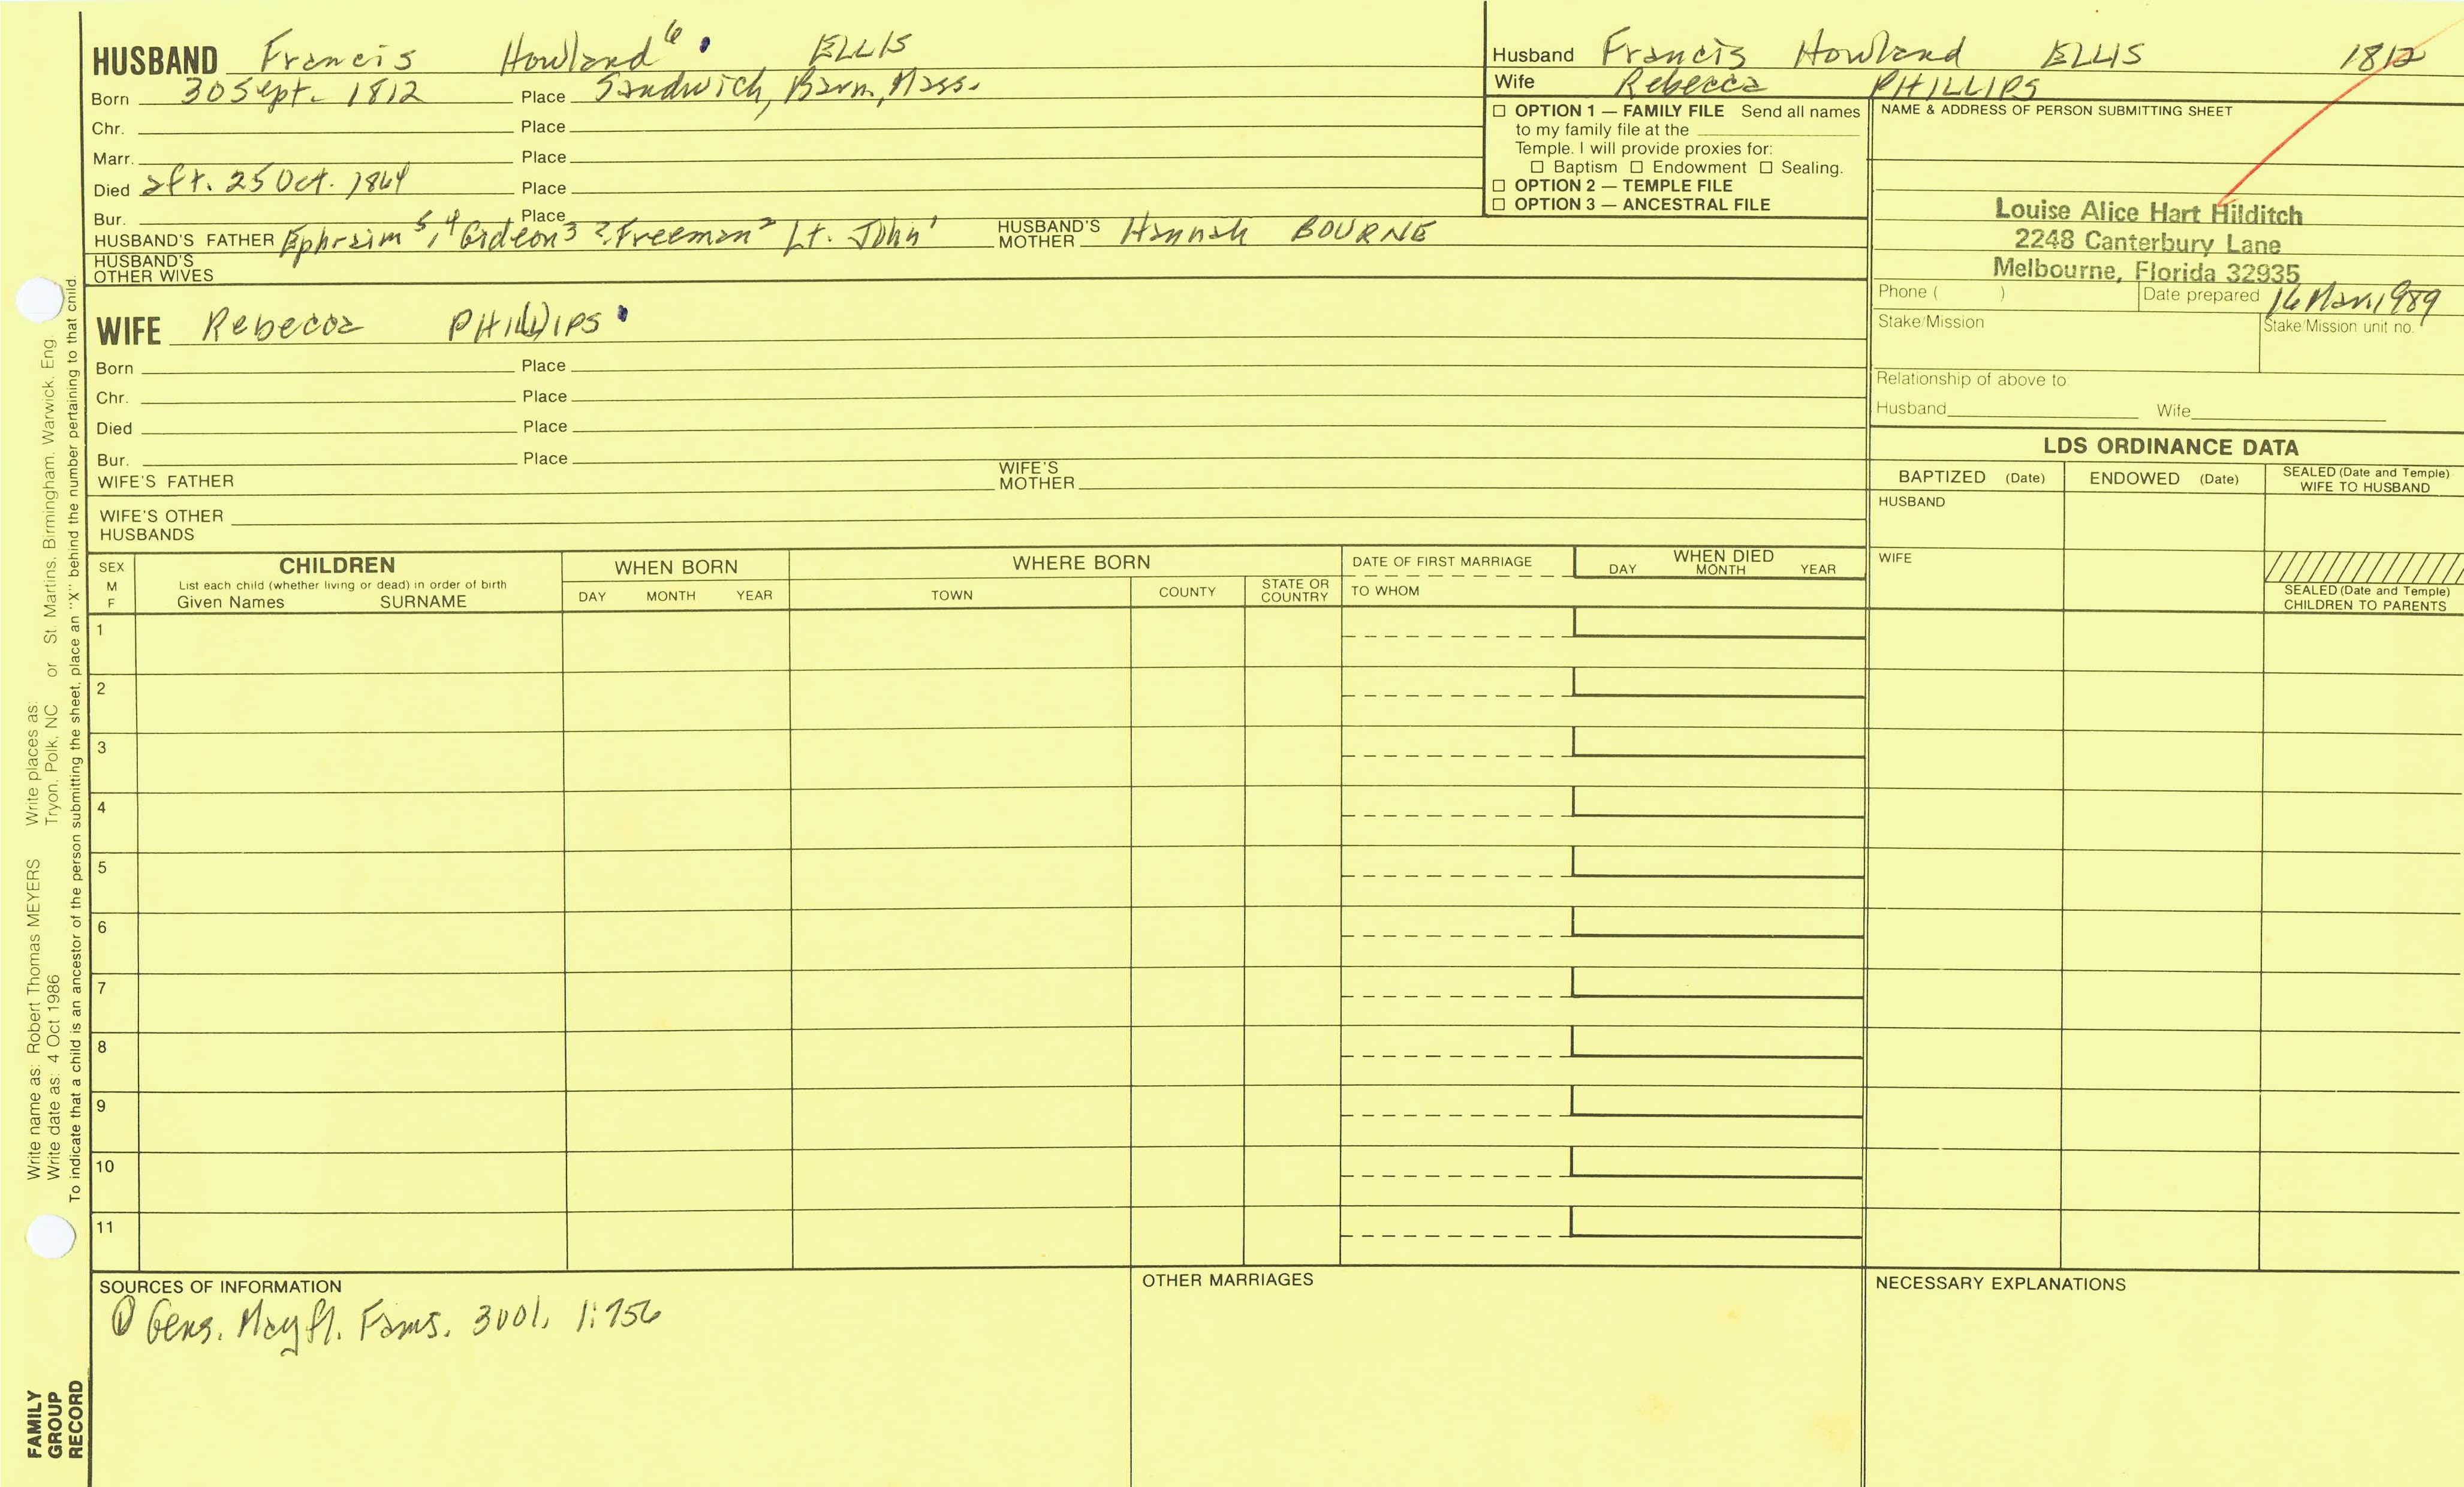 HUSBAND Francis Howland⁶ ELLIS
Born 30 Sept. 1812 Place Sandwich, Barn, Mass.
Chr. Place
Marr. Place
Died aft. 25 Oct. 1864 Place
Bur. Place
HUSBAND'S FATHER Ephraim⁵,⁴ Gideon³ ?, Freeman² Lt. John¹ HUSBAND'S MOTHER Hannah BOURNE
HUSBAND'S OTHER WIVES
WIFE Rebecca PHILLIPS
Born Place
Chr. Place
Died Place
Bur. Place
WIFE'S FATHER WIFE'S MOTHER
WIFE'S OTHER HUSBANDS
Husband Francis Howland ELLIS 1812
Wife Rebecca PHILLIPS
☐ OPTION 1 — FAMILY FILE Send all names
to my family file at the
Temple. I will provide proxies for:
☐ Baptism ☐ Endowment ☐ Sealing.
☐ OPTION 2 — TEMPLE FILE
☐ OPTION 3 — ANCESTRAL FILE
NAME & ADDRESS OF PERSON SUBMITTING SHEET
Louise Alice Hart Hilditch
2248 Canterbury Lane
Melbourne, Florida 32935
Phone ( ) Date prepared 16 Mar. 1989
Stake/Mission Stake/Mission unit no.
Relationship of above to:
Husband Wife
LDS ORDINANCE DATA
BAPTIZED (Date) ENDOWED (Date) SEALED (Date and Temple) WIFE TO HUSBAND
HUSBAND
WIFE
SEALED (Date and Temple) CHILDREN TO PARENTS
SEX M F
CHILDREN
List each child (whether living or dead) in order of birth
Given Names SURNAME
WHEN BORN
DAY MONTH YEAR
WHERE BORN
TOWN COUNTY STATE OR COUNTRY
DATE OF FIRST MARRIAGE
TO WHOM
WHEN DIED
DAY MONTH YEAR
1
2
3
4
5
6
7
8
9
10
11
SOURCES OF INFORMATION
① Gens. Mayfl. Fams. 3vol. 1:756
OTHER MARRIAGES
NECESSARY EXPLANATIONS
Write name as: Robert Thomas MEYERS Write places as:
Write date as: 4 Oct 1986 Tryon, Polk, NC or St. Martins, Birmingham, Warwick, Eng.
To indicate that a child is an ancestor of the person submitting the sheet, place an "X" behind the number pertaining to that child.
FAMILY
GROUP
RECORD